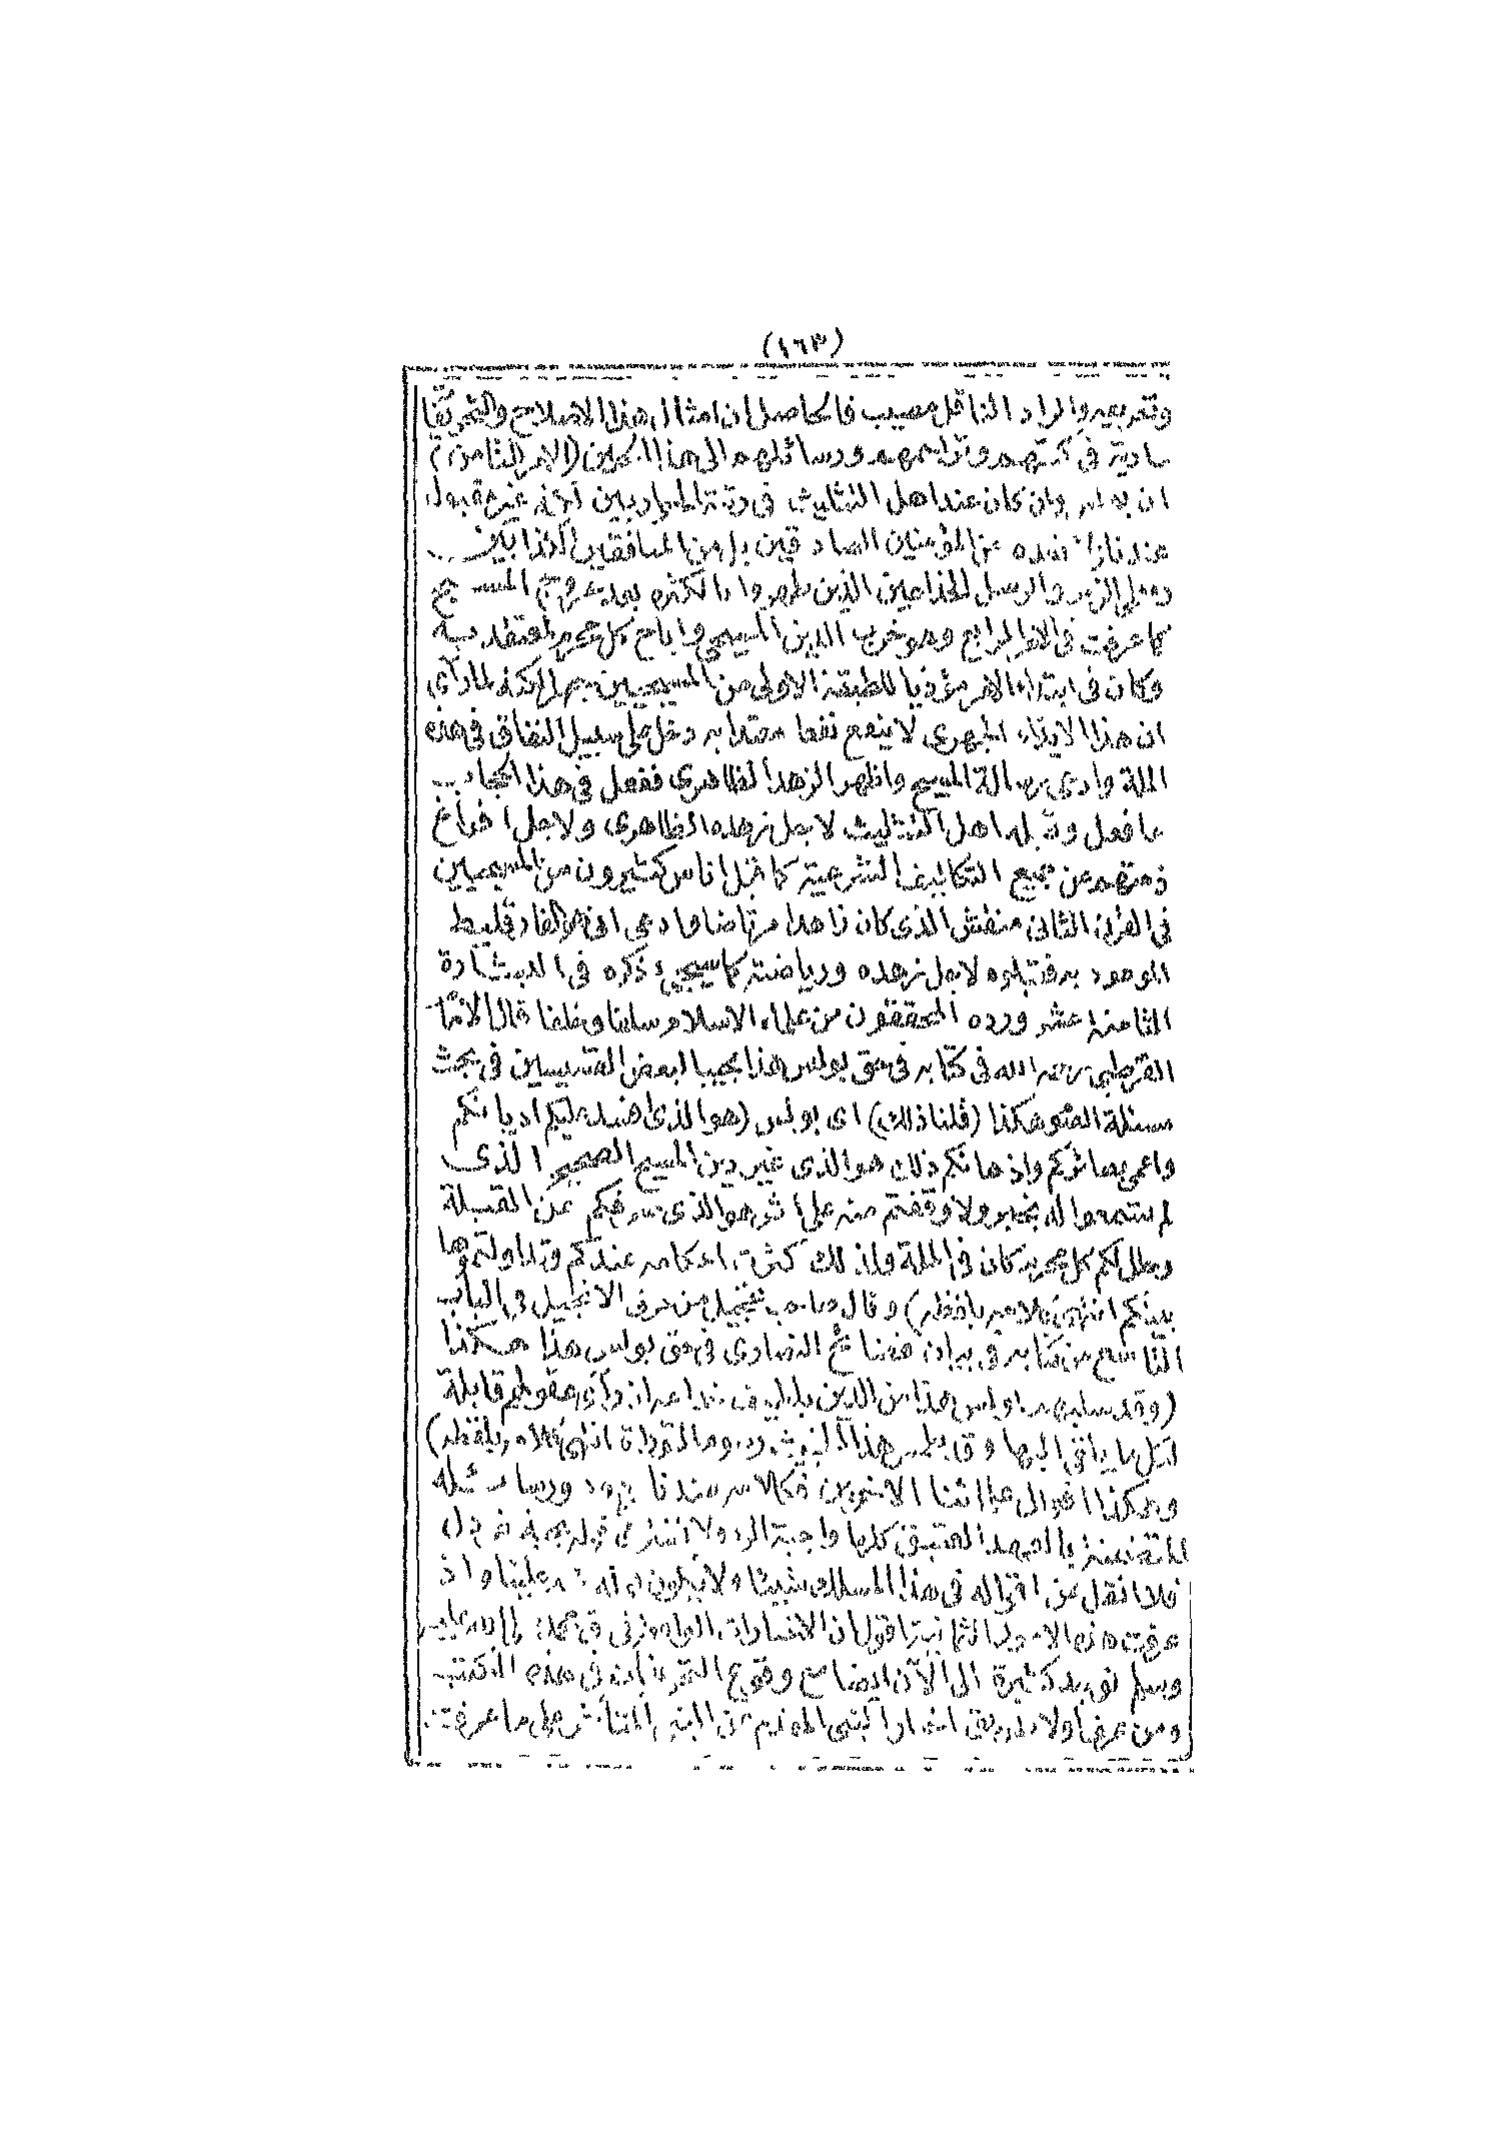 (١٦٣)
وتقريعه وايراد الناقل معيب فالحاصل ان امثال هذا الاصلاح والتحريفا
سارية فى كتبهم وتراجمهم ورسائلهم الى هذا الحين (الامر الثامن)
ان بولس وان كان عند اهل التثليث فى رتبة الحواريين لكنه غير مقبول
عندنا ولا نعده من المؤمنين الصادقين بل من المنافقين الكذابين
ومعلمى الزور والرسل الخداعين الذين ظهروا بالكثرة بعد عروج المسيح
كما عرفت فى الامر الرابع وهو خرب الدين المسيحى واباح كل محرم لمعتقديه
وكان فى ابتداء الامر مؤذيا للطبقة الاولى من المسيحيين جهرا لكنه لما رأى
ان هذا الايذاء الجهرى لا ينفع نفعا معتدا به دخل على سبيل النفاق فى هذه
الملة وادعى رسالة المسيح واظهر الزهد الظاهرى ففعل فى هذا الحجاب
ما فعل وقبله اهل التثليث لاجل زهده الظاهرى ولاجل افراغ
ذمتهم عن جميع التكاليف الشرعية كما قبل اناس كثيرون من المسيحيين
فى القرن الثانى منتنس الذى كان زاهدا مرتاضا وادعى انى هو الفارقليط
الموعود به فقبلوه لاجل زهده ورياضته كما سيجىء ذكره فى البشارة
الثامنة عشر ورده المحققون من علماء الاسلام سلفا وخلفا قال الاما
القرطبى رحمه الله فى كتابه فى حق بولس هذا مجيبا لبعض القسيسين فى بحث
مسئلة الصوم هكذا (قلنا ذلك) اى بولس (هو الذى افسد عليكم اديانكم
واعمى بصائركم واذهانكم ذلك هو الذى غير دين المسيح الصحيح الذى
لم تسمعوا له بخبر ولا وقفتم منه على اثر هو الذى صرفكم عن القبلة
وحلل لكم كل محرم كان فى الملة ولذلك كثرت احكامه عندكم وتداولتموها
بينكم انتهى كلامه بلفظه) وقال صاحب تخجيل من حرف الانجيل فى الباب
التاسع من كتابه فى بيان فضائح النصارى فى حق بولس هذا هكذا
(وقد سلبهم بولس هذا من الدين بلطيف خداعه اذ رأى عقولهم قابلة
لكل ما يلقى اليها وقد طمس هذا الخبيث رسوم التوراة انتهى كلامه بلفظه)
وهكذا اقوال علمائنا الاخرين فكلامه عندنا مردود ورسائله
المنضمة بالعهد العتيق كلها واجبة الرد ولا نشترى قوله بحبة خردل
فلا انقل عن اقواله فى هذا المسلك شيئا ولا يكون قوله حجة علينا واذ
عرفت هذه الامور الثمانية اقول ان الاخبارات الواقعة فى حق محمد صلى الله عليه
وسلم توجد كثيرة الى الآن ايضا مع وقوع التحريفات فى هذه الكتب
ومن عرف اولا طريق اخبار النبى المتقدم عن النبى المتأخر على ما عرفت